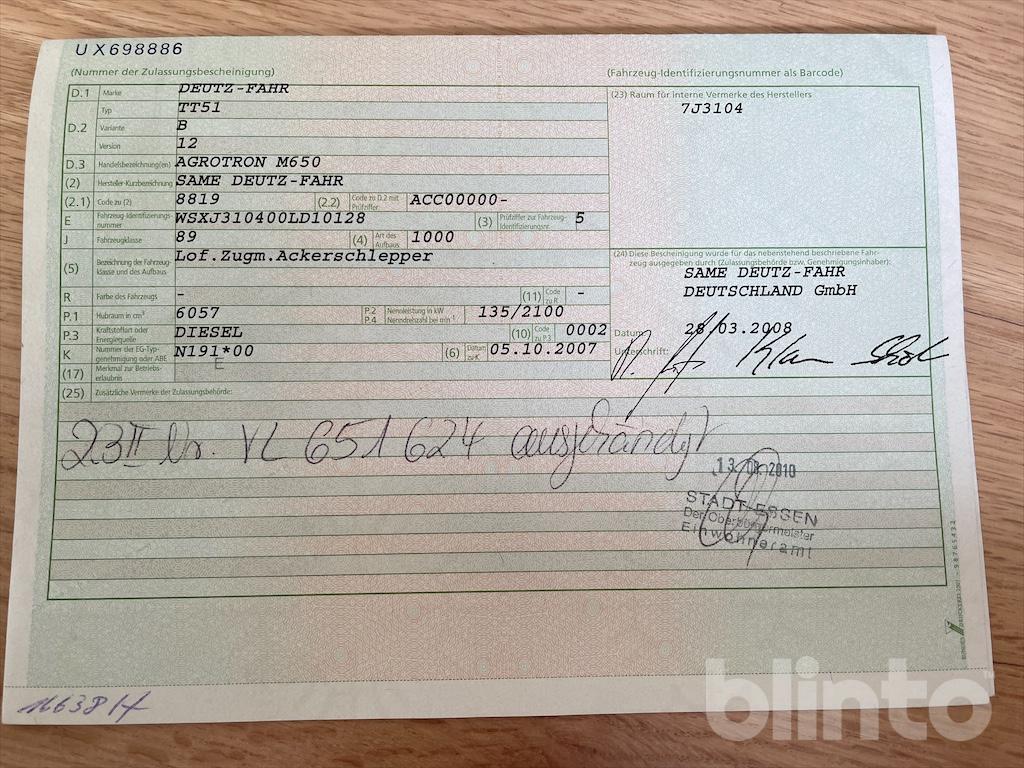 UX698886
(Nummer der Zulassungsbescheinigung) (Fahrzeug-Identifizierungsnummer als Barcode)
D.1 Marke DEUTZ-FAHR
(23) Raum für interne Vermerke des Herstellers
7J3104
D.2 Typ TT51
Variante B
Version 12
D.3 Handelsbezeichnung(en) AGROTRON M650
(2) Hersteller-Kurzbezeichnung SAME DEUTZ-FAHR
(2.1) Code zu (2) 8819 (2.2) Code zu D.2 mit Prüfziffer ACC00000-
E Fahrzeug-Identifizierungsnummer WSXJ310400LD10128 (3) Prüfziffer zur Fahrzeug-Identifizierungsnr. 5
J Fahrzeugklasse 89 (4) Art des Aufbaus 1000
(5) Bezeichnung der Fahrzeugklasse und des Aufbaus Lof.Zugm.Ackerschlepper
R Farbe des Fahrzeugs - (11) Code zu R -
P.1 Hubraum in cm³ 6057 P.2 P.4 Nennleistung in kW Nenndrehzahl bei min⁻¹ 135/2100
P.3 Kraftstoffart oder Energiequelle DIESEL (10) Code zu P.3 0002
K Nummer der EG-Typgenehmigung oder ABE N191*00 (6) Datum zu K 05.10.2007
E
(17) Merkmal zur Betriebserlaubnis
(24) Diese Bescheinigung wurde für das nebenstehend beschriebene Fahrzeug ausgegeben durch (Zulassungsbehörde bzw. Genehmigungsinhaber):
SAME DEUTZ-FAHR
DEUTSCHLAND GmbH
Datum: 28/03.2008
Unterschrift:
(25) Zusätzliche Vermerke der Zulassungsbehörde:
ZB II Nr. YL 651 624 ausgehändigt
2010
STADT ESSEN
Der Oberbürgermeister
Einwohneramt
16638/4
blinto